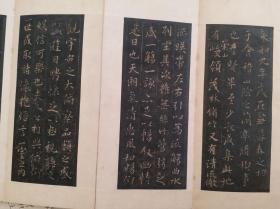 永和九年歲在癸丑暮春之初會
于會稽山陰之蘭亭脩禊事
也羣賢畢至少長咸集此地
有峻領茂林脩竹又有清流激
湍暎帶左右引以為流觴曲水
列坐其次雖無絲竹管弦之
盛一觴一詠亦足以暢叙幽情
是日也天朗氣清惠風和暢仰
觀宇宙之大俯察品類之盛
所以遊目騁懷足以極視聽之
娛信可樂也夫人之相與俯仰
一世或取諸懷抱悟言一室之內